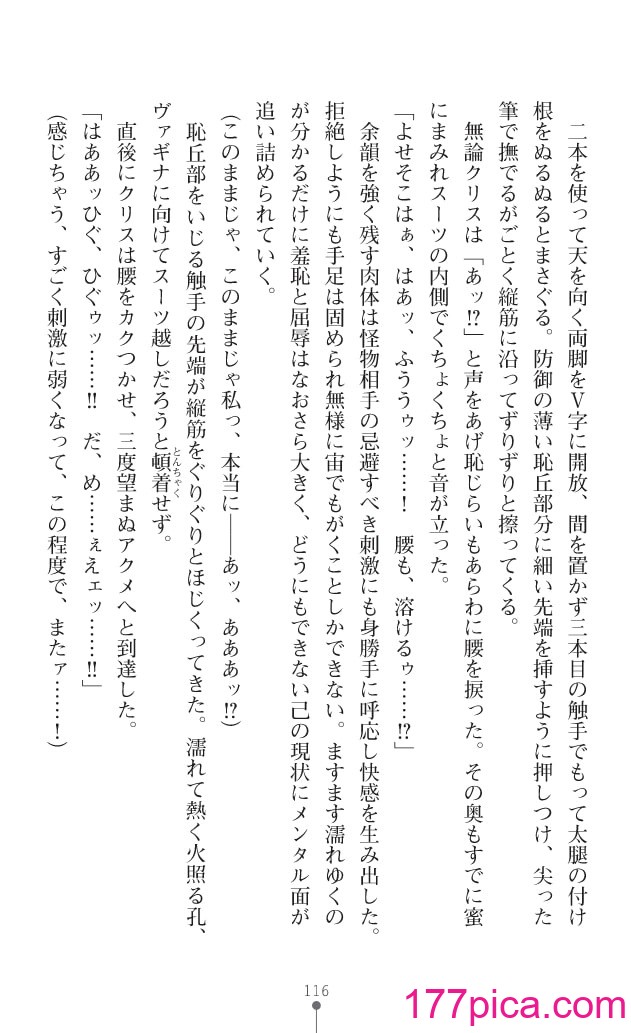 二本を使って天を向く両脚をV字に開放、間を置かず三本目の触手でもって太腿の付け
根をぬるぬるとまさぐる。防御の薄い恥丘部分に細い先端を挿すように押しつけ、尖った
筆で撫でるがごとく縦筋に沿ってずりずりと擦ってくる。
無論クリスは「あッ!?」と声をあげ恥じらいもあらわに腰を捩った。その奥もすでに蜜
にまみれスーツの内側でくちょくちょと音が立った。
「よせそこはぁ、はあッ、ふううゥッ……! 腰も、溶けるゥ……!?」
余韻を強く残す肉体は怪物相手の忌避すべき刺激にも身勝手に呼応し快感を生み出した。
拒絶しようにも手足は固められ無様に宙でもがくことしかできない。ますます濡れゆくの
が分かるだけに羞恥と屈辱はなおさら大きく、どうにもできない己の現状にメンタル面が
追い詰められていく。
(このままじゃ、このままじゃ私っ、本当に——あッ、あああッ!?)
恥丘部をいじる触手の先端が縦筋をぐりぐりとほじくってきた。濡れて熱く火照る孔、
ヴァギナに向けてスーツ越しだろうと頓着せず。
とんちゃく
直後にクリスは腰をカクつかせ、三度望まぬアクメへと到達した。
「はああッひぐ、ひぐゥッ……!! だ、め……ぇえェッ……!!」
(感じちゃう、すごく刺激に弱くなって、この程度で、またァ……!)
116
177pica.com